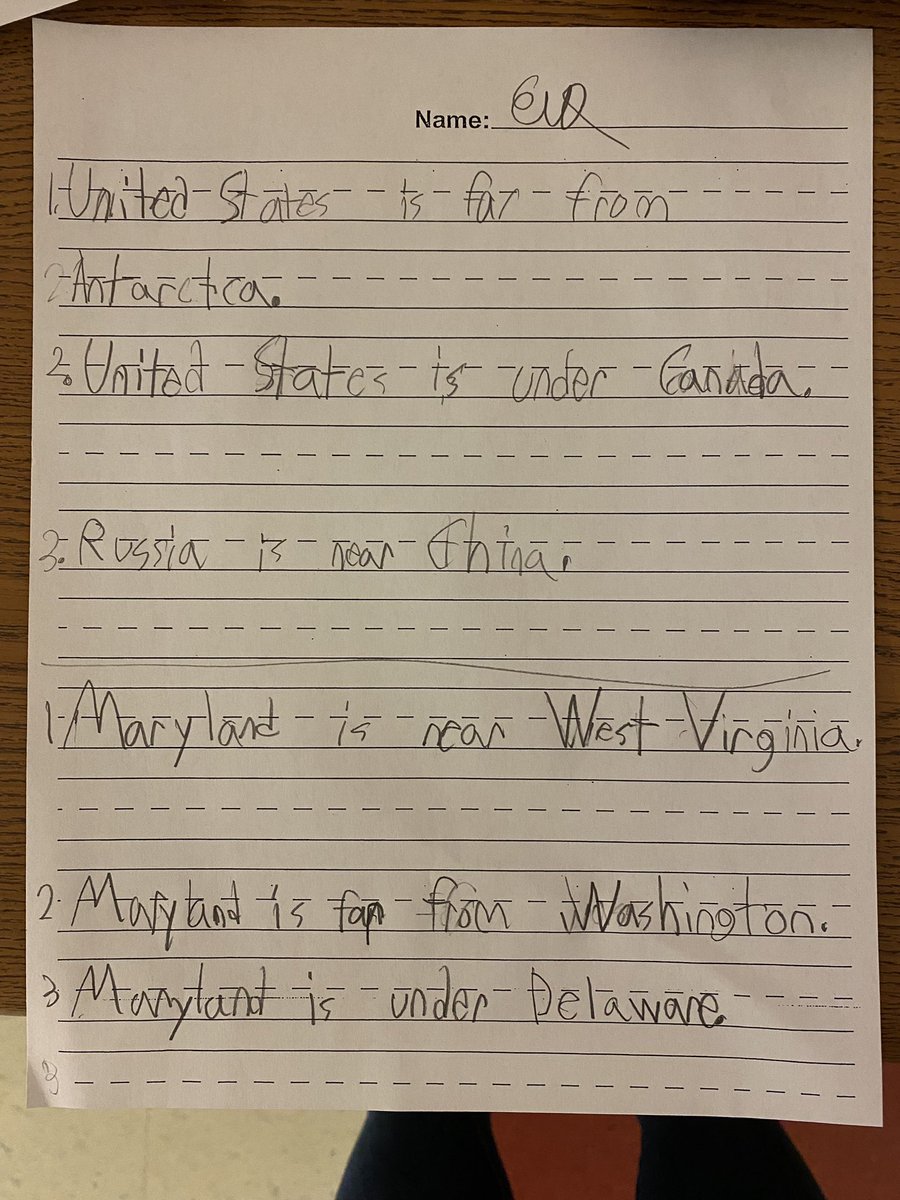 Name:
1. United States is far from
2 Antarctica.
2. United States is under Canada.
3. Russia is near China.
1. Maryland is near West Virginia.
2. Maryland is far from Washington.
3 Maryland is under Delaware.
3